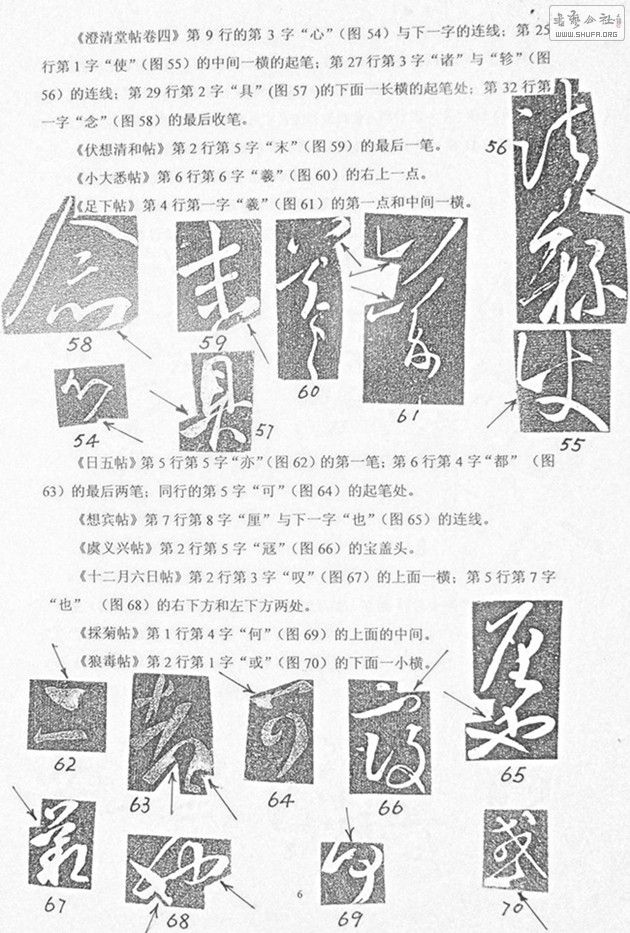 书艺公社
WWW.SHUFA.ORG
《澄清堂帖卷四》第 9 行的第 3 字“心”（图 54）与下一字的连线；第 25
行第 1 字“使”（图 55）的中间一横的起笔；第 27 行第 3 字“诸”与“轸”（图
56）的连线；第 29 行第 2 字“具”(图 57 )的下面一长横的起笔处；第 32 行第
一字“念”（图 58）的最后收笔。
《伏想清和帖》第 2 行第 5 字“末”（图 59）的最后一笔。
《小大悉帖》第 6 行第 6 字“羲”（图 60）的右上一点。
《足下帖》第 4 行第一字“羲”（图 61）的第一点和中间一横。
56
58
59
60
61
55
54
57
《日五帖》第 5 行第 5 字“亦”（图 62）的第一笔；第 6 行第 4 字“都” （图
63）的最后两笔；同行的第 5 字“可”（图 64）的起笔处。
《想宾帖》第 7 行第 8 字“厘”与下一字“也”（图 65）的连线。
《虞义兴帖》第 2 行第 5 字“寇”（图 66）的宝盖头。
《十二月六日帖》第 2 行第 3 字“叹”（图 67）的上面一横；第 5 行第 7 字
“也” （图 68）的右下方和左下方两处。
《採菊帖》第 1 行第 4 字“何”（图 69）的上面的中间。
《狼毒帖》第 2 行第 1 字“或”（图 70）的下面一小横。
62
63
64
66
65
67
68
69
70
6